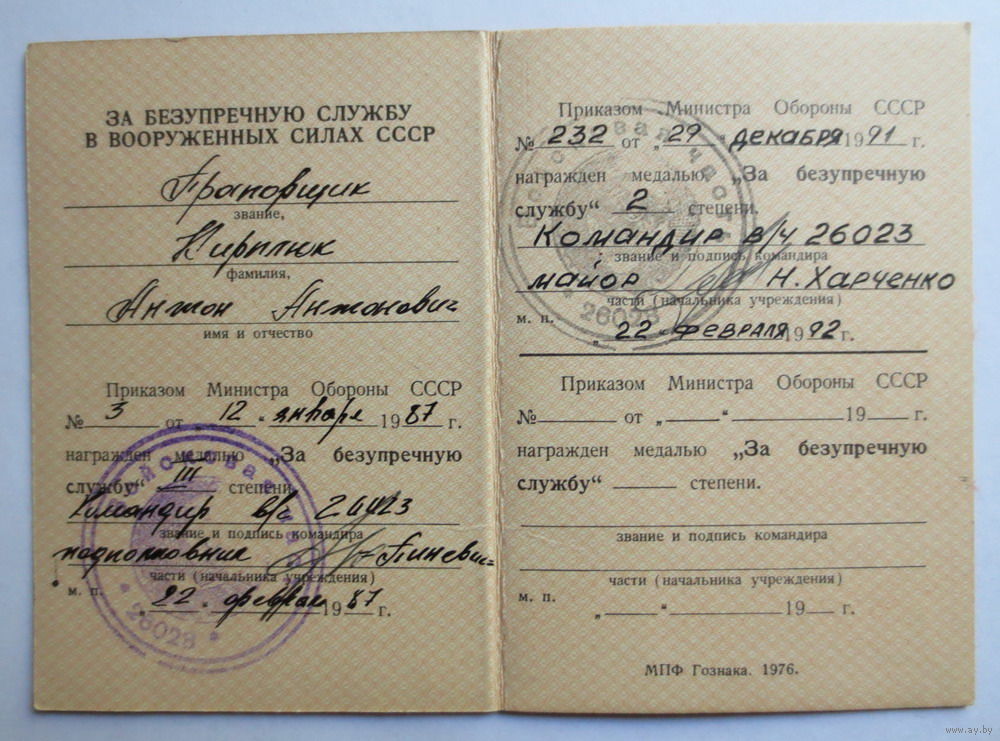 ЗА БЕЗУПРЕЧНУЮ СЛУЖБУ
В ВООРУЖЕННЫХ СИЛАХ СССР
Прапорщик
звание,
фамилия,
Антон Антонович
имя и отчество
Приказом Министра Обороны СССР
№ 3 от „12" января 1987 г.
награжден медалью „За безупречную
службу“ III степени.
Командир в/ч 26023
звание и подпись командира
подполковник Пиневич
части (начальника учреждения)
м. п.
„22" февраля 1987
Войсковая часть
* 26023 *
Приказом Министра Обороны СССР
№ 232 от „29" декабря 1991 г.
награжден медалью „За безупречную
службу“ 2 степени.
Командир в/ч 26023
звание и подпись командира
майор Н. Харченко
части (начальника учреждения)
м. п.
„22" февраля 1992 г.
Войсковая часть
* 26023
Приказом Министра Обороны СССР
№ от „ “ 19 г.
награжден медалью „За безупречную
службу“ степени.
звание и подпись командира
части (начальника учреждения)
м. п.
„ “ 19 г.
МПФ Гознака. 1976.
www.ay.by